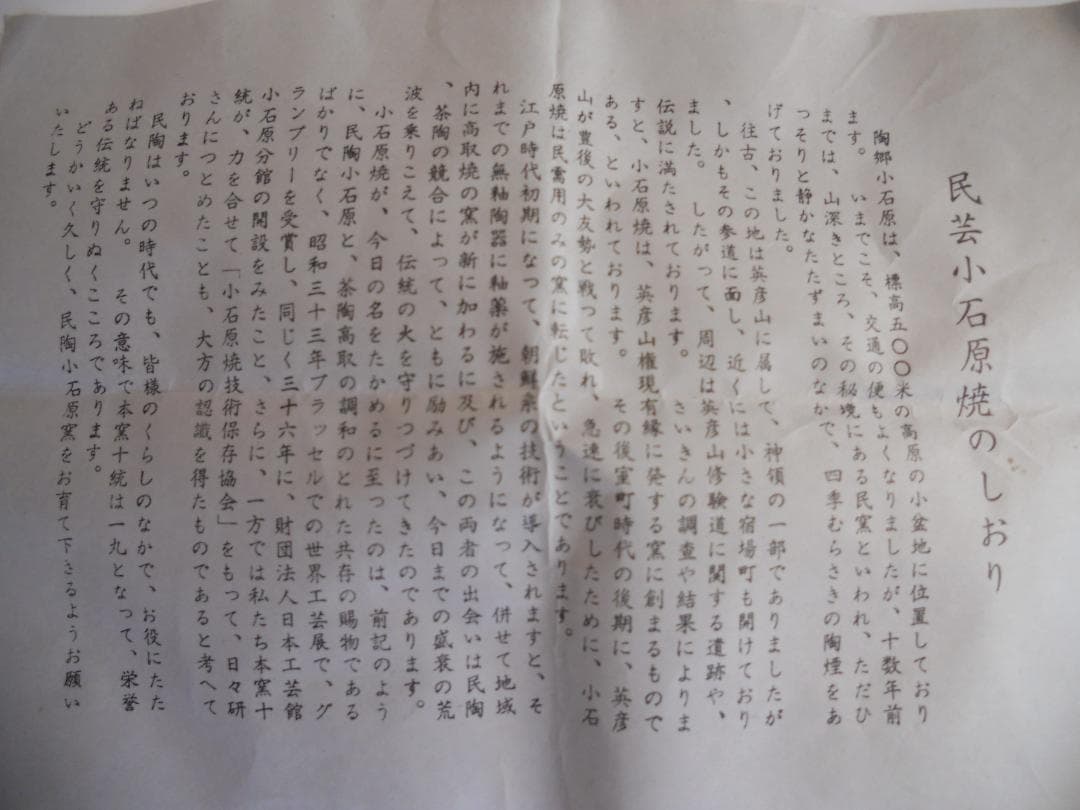 民芸小石原焼のしおり
陶郷小石原は、標高五〇〇米の高原の小盆地に位置しており
ます。 いまでこそ、交通の便もよくなりましたが、十数年前
までは、山深きところ、その秘境にある民窯といわれ、ただひ
っそりと静かなたたずまいのなかで、四季むらさきの陶煙をあ
げておりました。
往古、この地は英彦山に属して、神領の一部でありましたが
、しかもその参道に面し、近くには小さな宿場町も開けており
ました。 したがって、周辺は英彦山修験道に関する遺跡や、
伝説に満たされております。 さいきんの調査や結果によりま
すと、小石原焼は、英彦山権現有縁に発する窯に創まるもので
ある、といわれております。 その後室町時代の後期に、英彦
山が豊後の大友勢と戦って敗れ、急速に衰びしたために、小石
原焼は民需用のみの窯に転じたということであります。
江戸時代初期になって、朝鮮系の技術が導入されますと、そ
れまでの無釉陶器に釉薬が施されるようになって、併せて地域
内に高取焼の窯が新に加わるに及び、この両者の出会いは民陶
、茶陶の競合によって、ともに励みあい、今日までの盛衰の荒
波を乗りこえて、伝統の火を守りつづけてきたのであります。
小石原焼が、今日の名をたかめるに至ったのは、前記のよう
に、民陶小石原と、茶陶高取の調和のとれた共存の賜物である
ばかりでなく、昭和三十三年ブラッセルでの世界工芸展で、グ
ランプリーを受賞し、同じく三十六年に、財団法人日本工芸館
小石原分館の開設をみたこと、さらに、一方では私たち本窯十
統が、力を合せて「小石原焼技術保存協会」をもって、日々研
さんにつとめたことも、大方の認識を得たものであると考へて
おります。
民陶はいつの時代でも、皆様のくらしのなかで、お役にたた
ねばなりません。 その意味で本窯十統は一丸となって、栄誉
ある伝統を守りぬくこころであります。
どうかいく久しく、民陶小石原窯をお育て下さるようお願い
いたします。